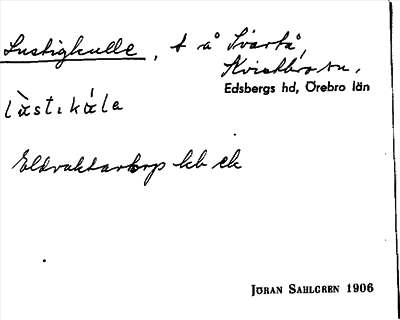 Lustigkulle, t å Svartå,
Kvistbro sn,
Edsbergs hd, Örebro län
lὰst.kάla
Eldvaktartorp kb ek
JÖRAN SAHLGREN 1906